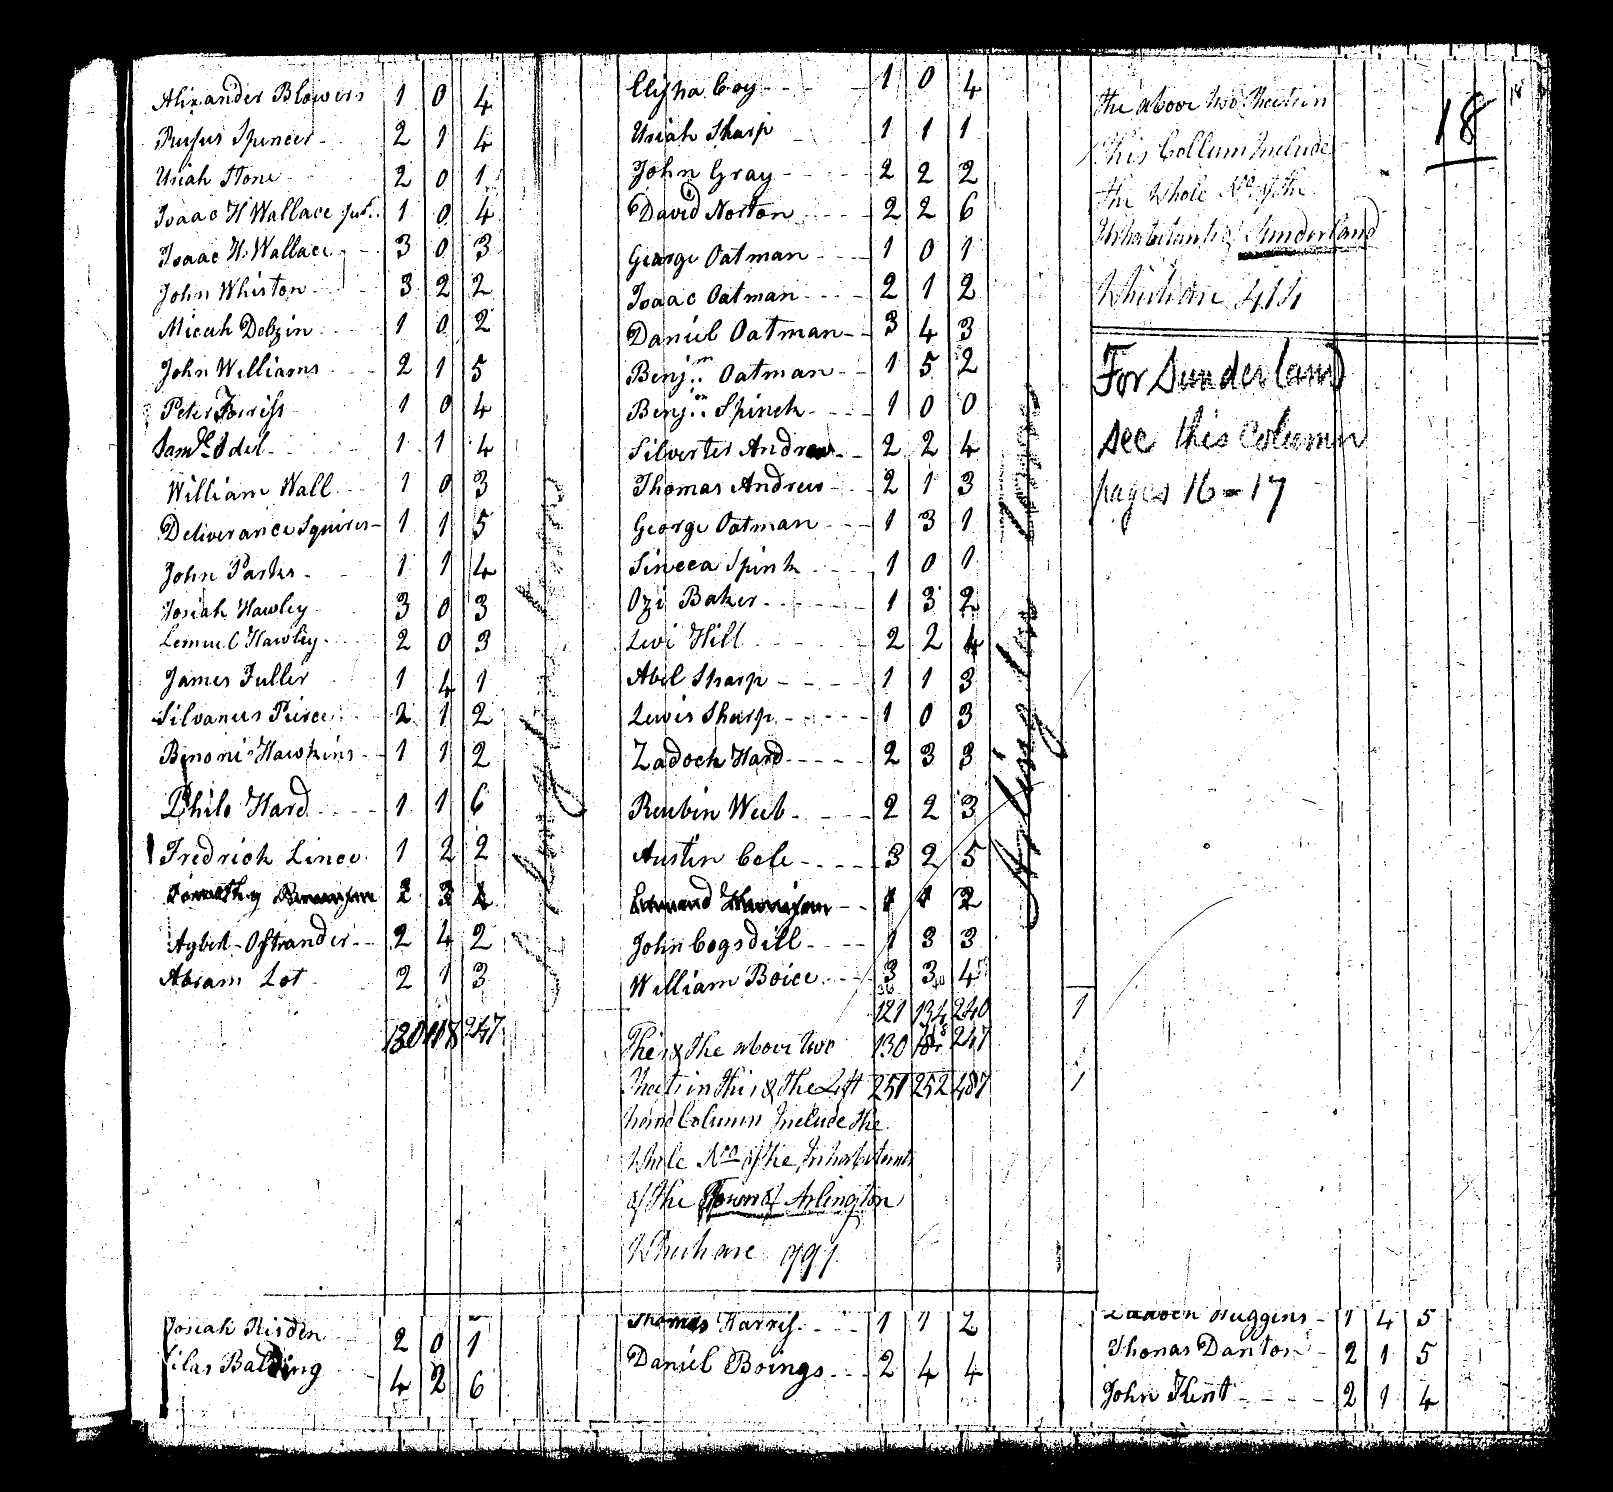 Alixander Blowers 1 0 4
Rufus Spencer 2 1 4
Uriah Stone 2 0 1
Isaac H Wallace Jur. 1 0 4
Isaac H. Wallace 3 0 3
John Whiston 3 2 2
Micah Delzin 1 0 2
John Williams 2 1 5
Peter Forriss 1 0 4
Saml. Odel 1 1 4
William Wall 1 0 3
Deliverance Squires 1 1 5
John Parks 1 1 4
Josiah Hawley 3 0 3
Lemuel Hawley 2 0 3
James Fuller 1 4 1
Silvanus Peirce 2 1 2
Benoni Hawkins 1 1 2
Philo Hard 1 1 6
Fredrick Lince 1 2 2
Timothy
Agbert Ostrander 2 4 2
Abram Lot 2 1 3
130 118 247
Josiah Risden 2 0 1
Silas Balding 4 2 6
Arlington
Elisha Coy 1 0 4
Uriah Sharp 1 1 1
John Gray 2 2 2
David Norton 2 2 6
George Oatman 1 0 1
Isaac Oatman 2 1 2
Daniel Oatman 3 4 3
Benjm. Oatman 1 5 2
Benjm. Spinck 1 0 0
Silvester Andrew 2 2 4
Thomas Andrew 2 1 3
George Oatman 1 3 1
Sineca Spink 1 0 1
Ozi Baker 1 3 2
Levi Hill 2 2 4
Abel Sharp 1 1 3
Lewis Sharp 1 0 3
Zadock Hard 2 3 3
Reubin Weeb 2 2 3
Austin Cole 3 2 5
Edmund 1 1 2
John Cogsdill 1 3 3
William Boice 3 3 4
121 134 240 1
This & the above two 130 118 247
Sheets in this & the Left 251 252 487 1
hand Column Include the
Whole No of the Inhabitants
of the Town of Arlington
Which are 991
Thomas Harris 1 1 2
Daniel Boings 2 4 4
Arlington
the above two Sheets in
this Collum Include
the Whole No. of the
Inhabitants of Sunderland
Which are 414
18
For Sunderland
see this column
pages 16-17
Huggins 1 4 5
Thomas Danton 2 1 5
John Kent 2 1 4